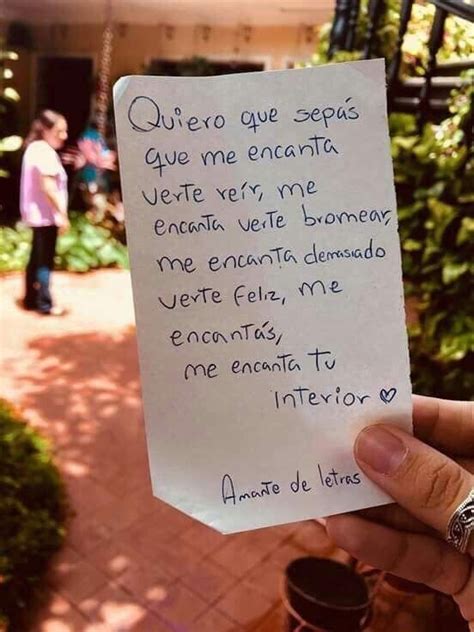 Quiero que sepás
que me encanta
verte reír, me
encanta verte bromear,
me encanta demasiado
verte feliz, me
encantás,
me encanta tu
interior ♡
Amante de letras